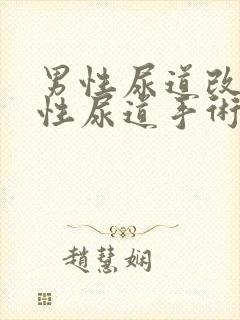 男性尿道改
性尿道手術
趙慧娴